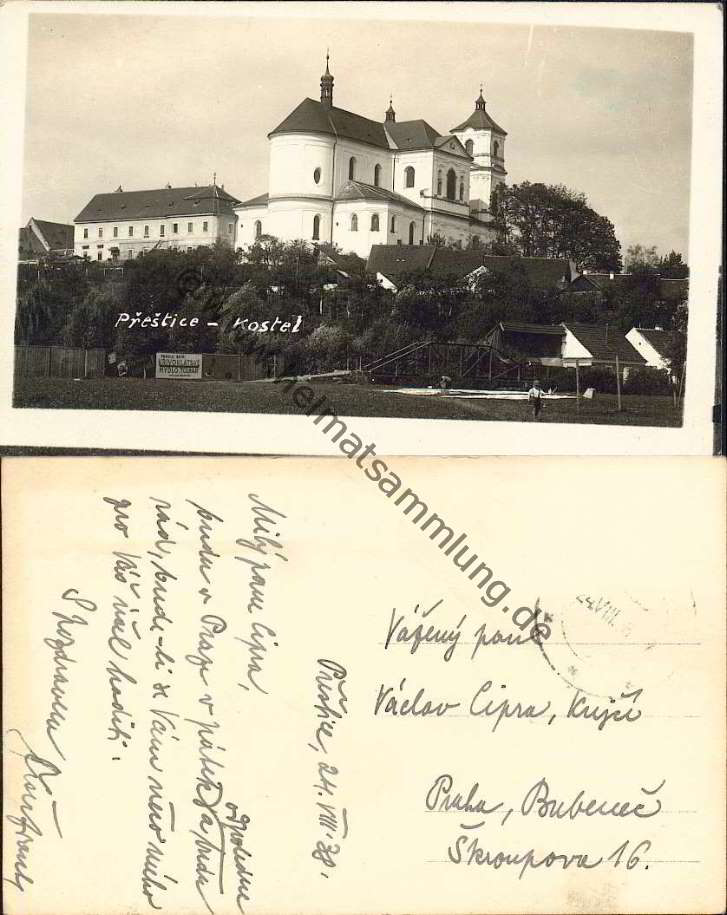 Přeštice – Kostel
© www.heimatsammlung.de
Milý pane Cipra,
budu v Praze v pátek odpoledne a budu
rád, bude-li se Vám něco mého
pro Váš účel hoditi.
S pozdravem
Přeštice, 24. VIII. 38.
24.VIII.
Vážený pan
Václav Cipra, krejčí
Praha, Bubeneč
Škroupova 16.